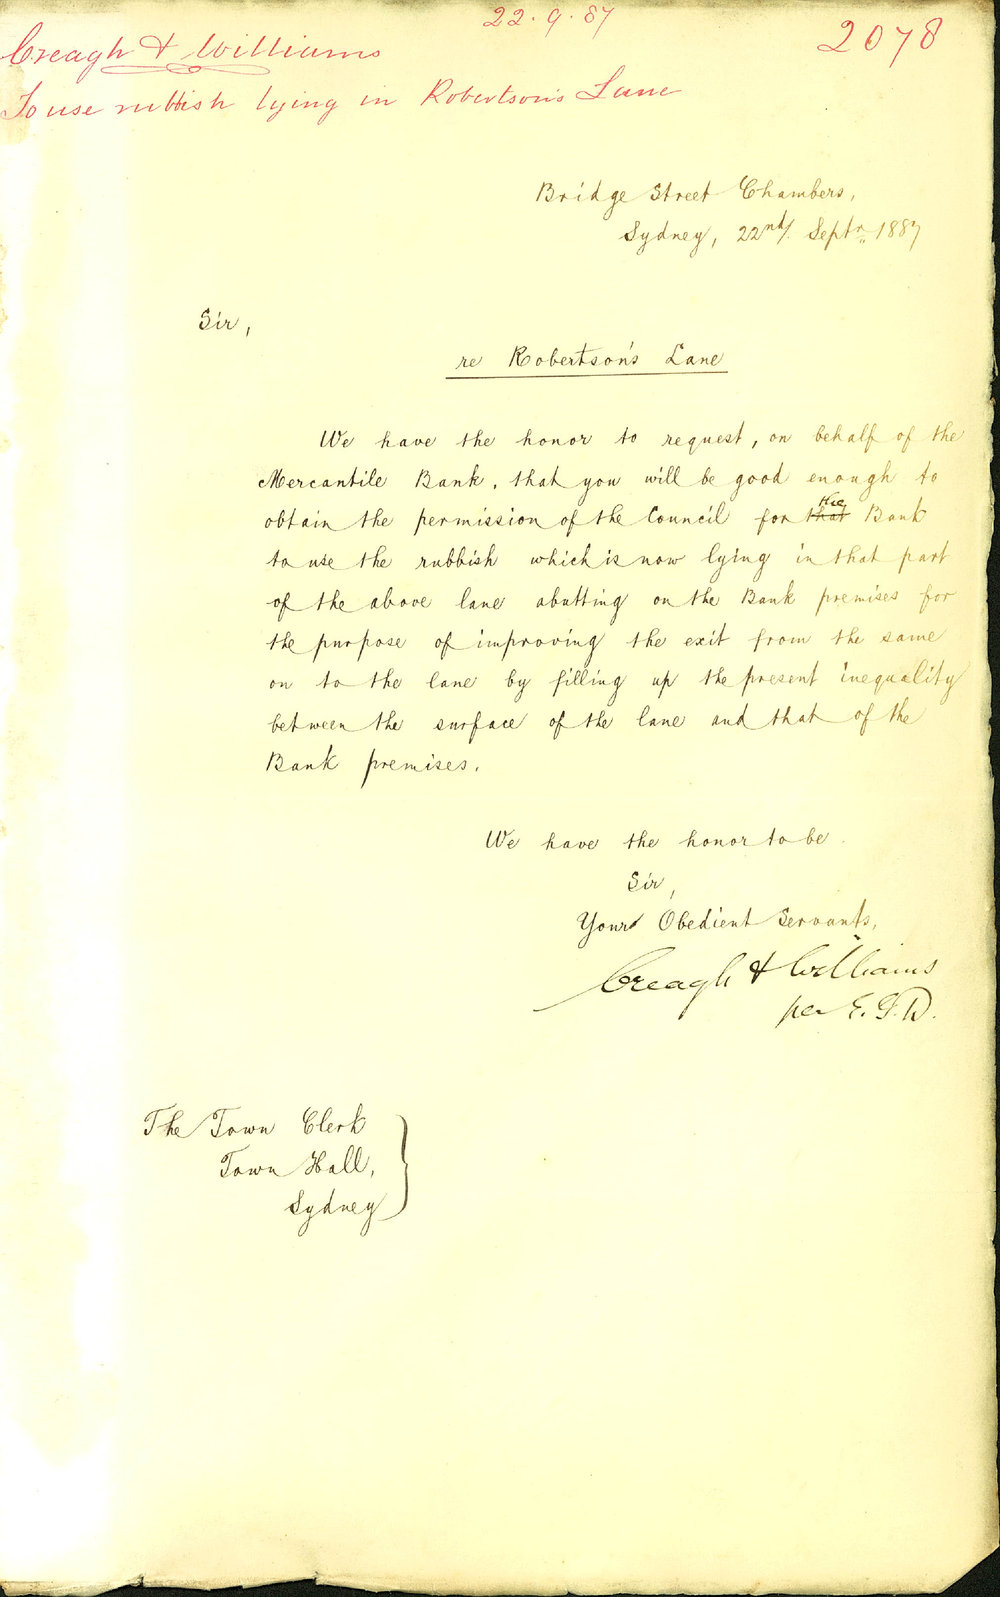 22.9.87
2078
Creagh & Williams
To use rubbish lying in Robertson's Lane
Bridge Street Chambers,
Sydney, 22nd/. Septr. 1887
Sir,
re Robertson's Lane
We have the honor to request, on behalf of the
Mercantile Bank, that you will be good enough to
obtain the permission of the Council for that the Bank
to use the rubbish which is now lying in that part
of the above lane abutting on the Bank premises for
the purpose of improving the exit from the same
on to the lane by filling up the present inequality
between the surface of the lane and that of the
Bank premises.
We have the honor to be
Sir,
Your Obedient Servants,
Creagh & Williams
per E.G.W.
The Town Clerk
Town Hall,
Sydney